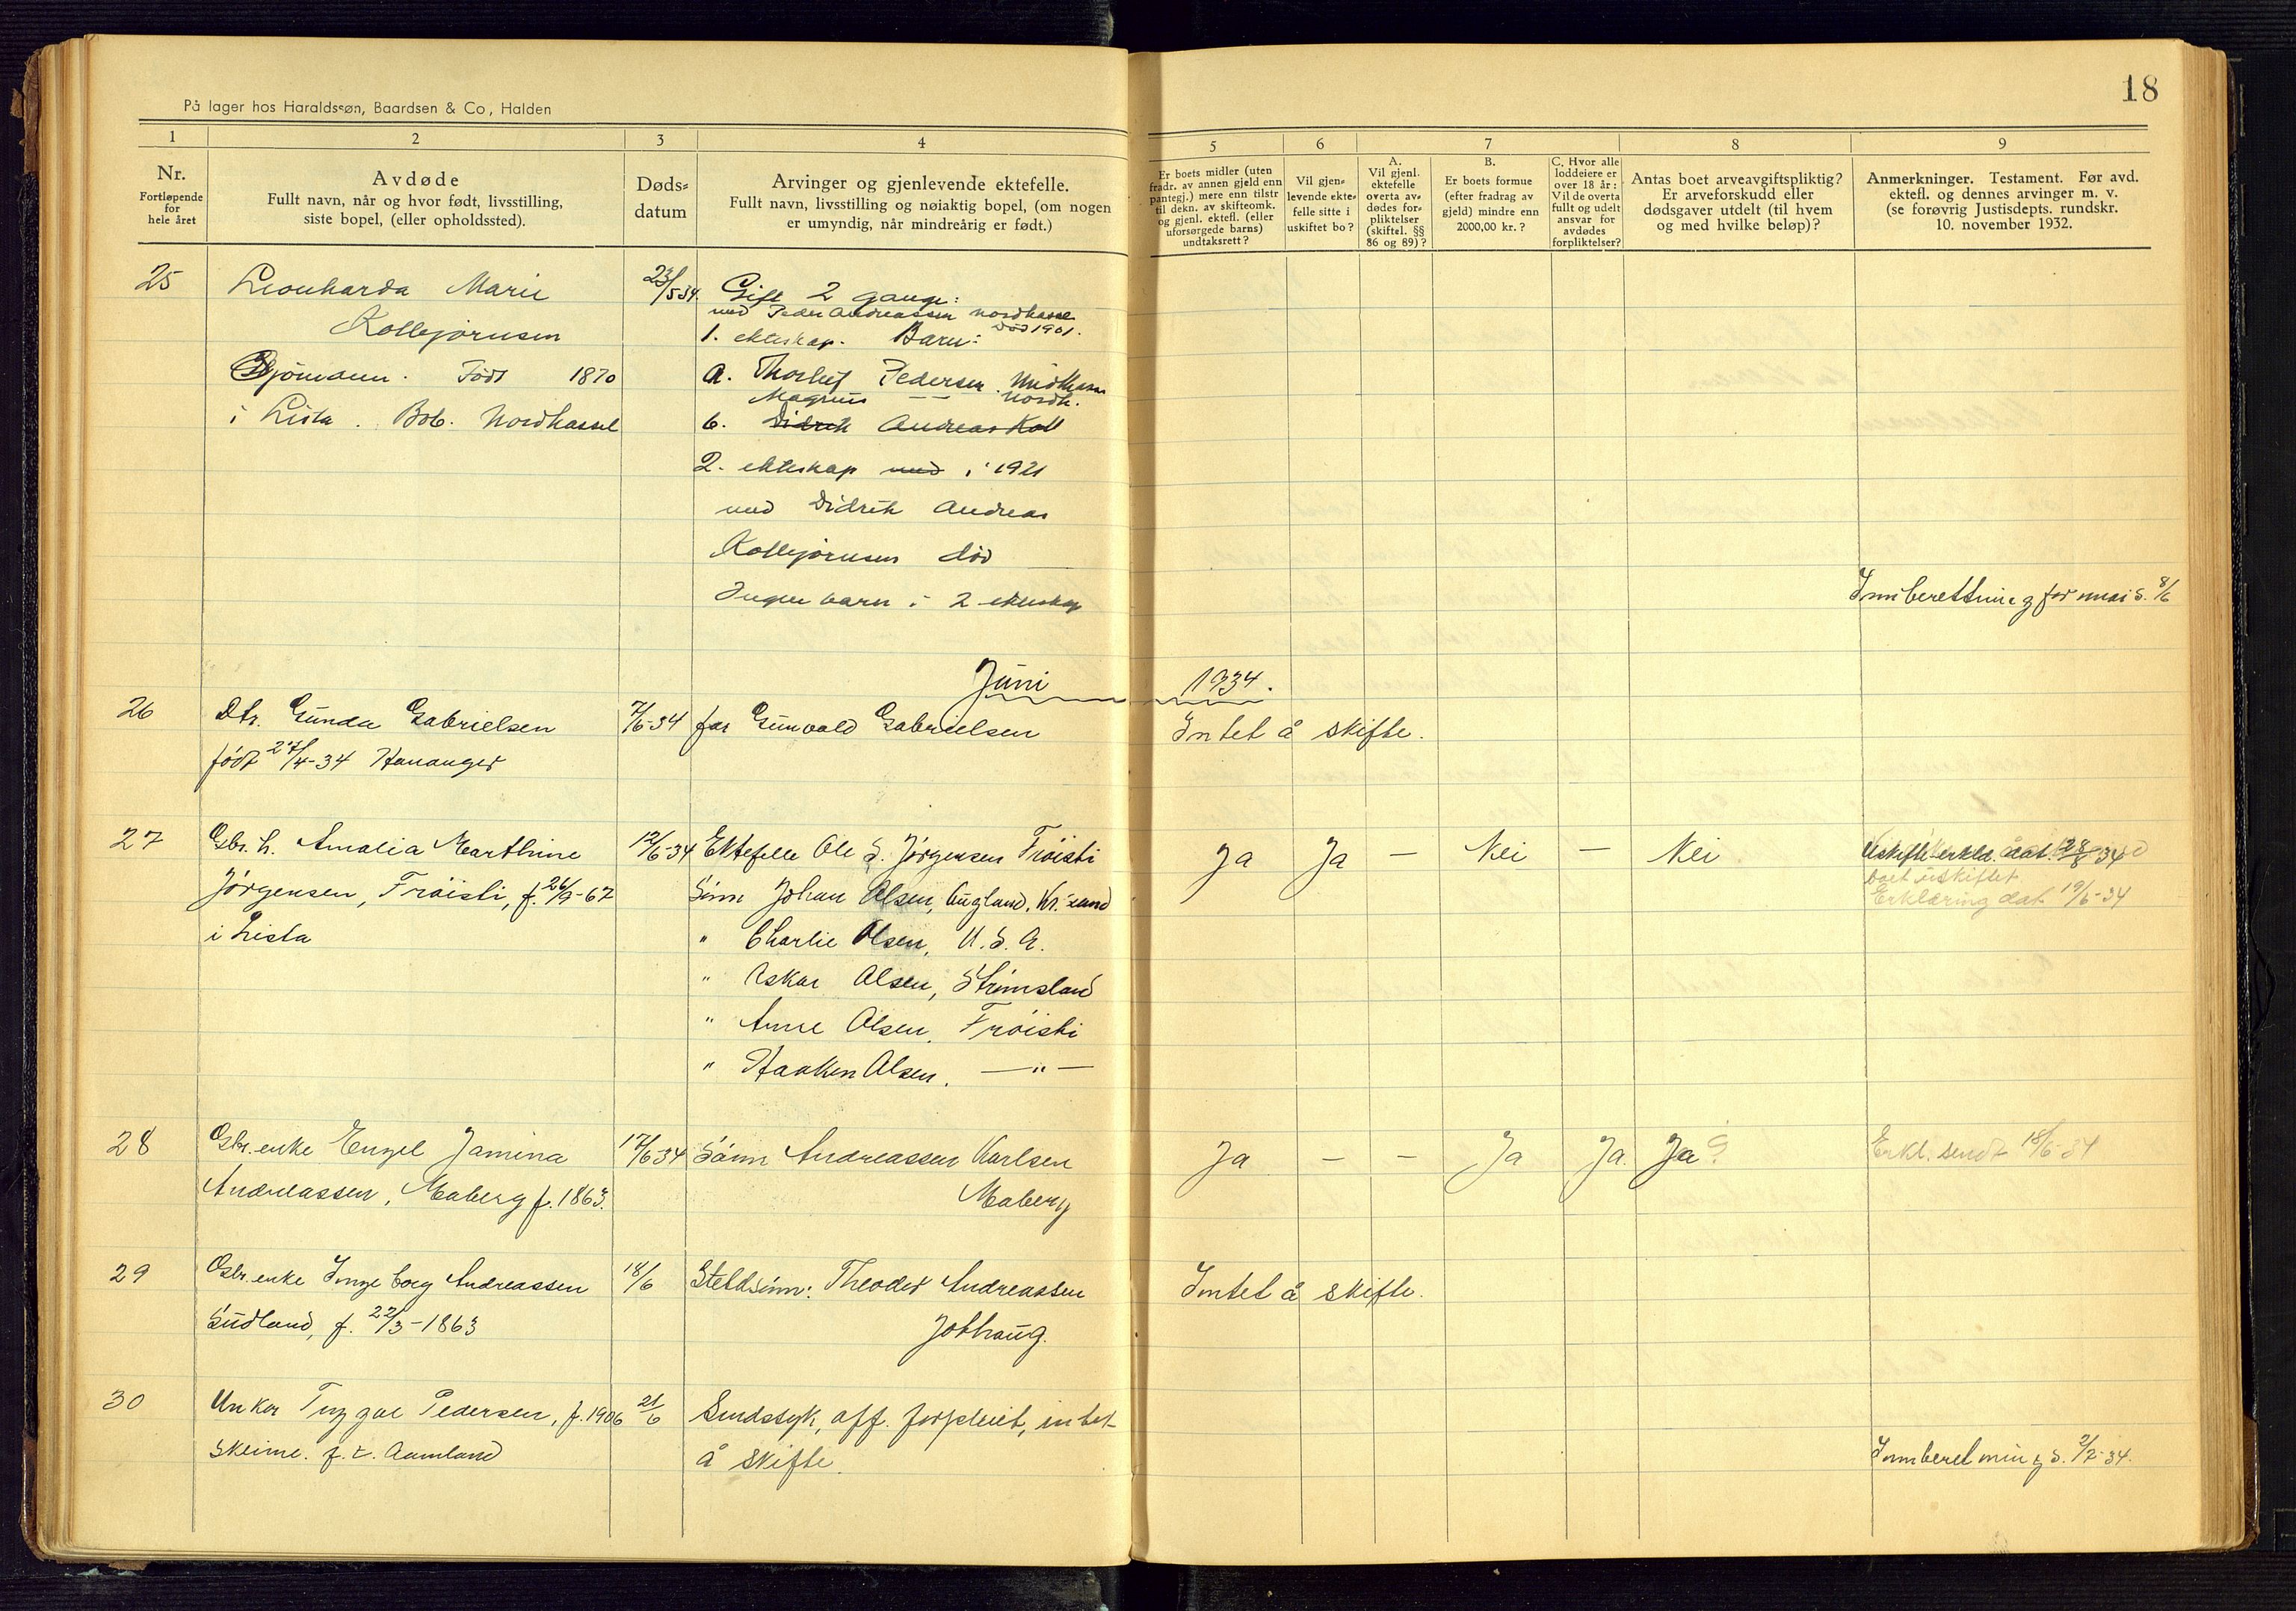 18
På lager hos Haraldssøn, Baardsen & Co, Halden
1 2 3 4 5 6 7 8 9
Nr.
Fortløpende
for
hele året
Avdøde
Fullt navn, når og hvor født, livsstilling,
siste bopel, (eller opholdssted).
Døds-
datum
Arvinger og gjenlevende ektefelle.
Fullt navn, livsstilling og nøiaktig bopel, (om nogen
er umyndig, når mindreårig er født.)
Er boets midler (uten
fradr. av annen gjeld enn
pantegj.) mere enn tilstr
til dekn. av skifteomk.
og gjenl. ektefl. (eller
uforsørgede barns)
undtaksrett?
Vil gjen-
levende ekte-
felle sitte i
uskiftet bo?
A.
Vil gjenl.
ektefelle
overta av-
dødes for-
pliktelser
(skiftel. §§
86 og 89)?
B.
Er boets formue
(efter fradrag av
gjeld) mindre enn
2000,00 kr.?
C. Hvor alle
loddeiere er
over 18 år:
Vil de overta
fullt og udelt
ansvar for
avdødes
forpliktelser?
Antas boet arveavgiftspliktig?
Er arveforskudd eller
dødsgaver utdelt (til hvem
og med hvilke beløp)?
Anmerkninger. Testament. Før avd.
ektefl. og dennes arvinger m. v.
(se forøvrig Justisdepts. rundskr.
10. november 1932.
25 Leonharda Marie 23/5 34. Gift 2 gange:
med Peder Andreassen Nordhassel
Død 1901.
Kolbjørnsen 1. ekteskap. Barn:
Født 1870 a. Thorleif Pedersen
Magnus — — Nordh.
i Lista. Bob. Nordhassel b. Didrik Andreas Kol
2. ekteskap med i 1921
med Didrik Andreas
Kolbjørnsen død
Ingen barn i 2 ekteskap
Innberetning for mai s. 8/6
Juni 1934.
26 Dtr. Gunda Gabrielsen 7/6-34 far Gunvald Gabrielsen Intet å skifte.
født 27/4-34 Hananger
27 Gbr. h. Amalia Marthine 12/6-34 Ektefelle Ole S. Jørgensen Frøisti Ja Ja — Nei — Nei Uskifteerklæ. dat. 28/8 34
boet uskiftet
Jørgensen, Frøisti, f. 26/9-67 Sønn Johan Olsen, Augland, Kr.sand Erklæring dat 19/6-34
i Lista " Charlie Olsen, U. S. A.
" Oskar Olsen, Strømsland
" Arne Olsen, Frøisti
" Haaken Olsen. — " —
28 Gbr. enke Engel Jamina 17/6-34 Sønn Andreassen Karlsen Ja — — Ja Ja. Ja? Erkl. sendt 18/6-34
Andreassen, Maberg f. 1863. Maberg
29 Gbr. enke Ingeborg Andreassen 18/6 Stedsønn: Theodor Andreassen Intet å skifte.
Sudland, f. 22/3-1863 Jøllhaug.
30 Unkar Pedersen, f. 1906 21/6 Sindssyk, off. forpleiet, intet
Skeime. f. t. Aamland å skifte. Innberetning s. 2/7-34.